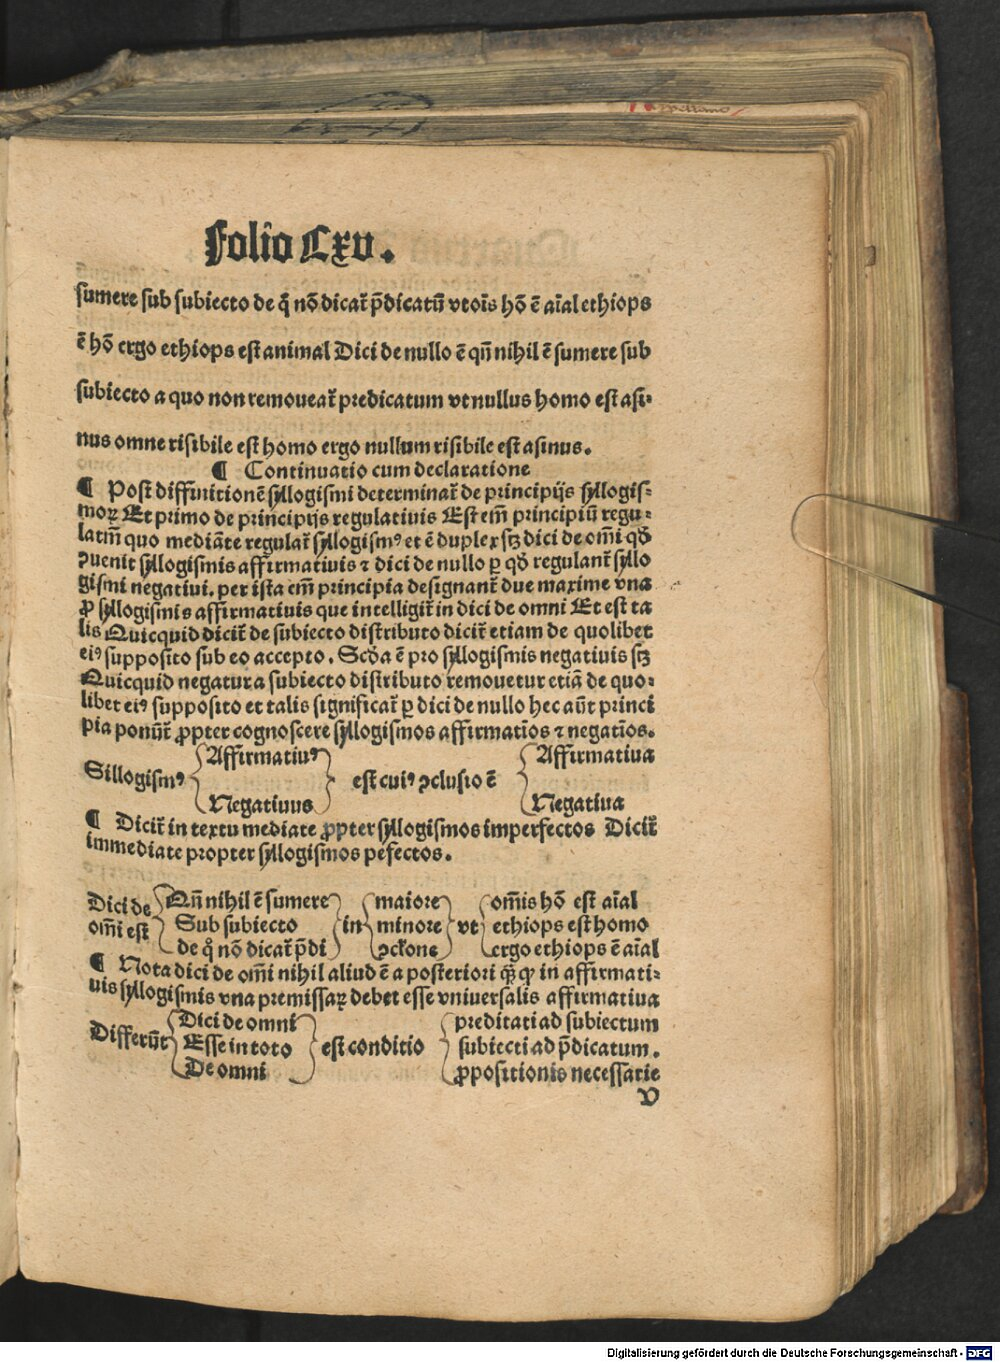 Folio Lxv.
sumere sub subiecto de q̄ nō dicat̄ p̄dicatū vtoīs hō ē aīal ethiops
ē hō ergo ethiops est animal Dici de nullo ē qn̄ nihil ē sumere sub
subiecto a quo non remoueat̄ predicatum vt nullus homo est asi⸗
nus omne risibile est homo ergo nullum risibile est asinus.
¶ Continuatio cum declaratione
¶ Post diffinitionē syllogismi determinat̄ de principijs syllogis⸗
moꝝ Et primo de principijs regulatiuis Est em̄ principiū regu⸗
latm̄ quo mediāte regulat̄ syllogismꝰ et ē duplex scꝫ dici de om̄i qḋ
ꝯuenit syllogismis affirmatiuis ⁊ dici de nullo ꝑ qḋ regulant̄ syllo
gismi negatiui. per ista em̄ principia designant̄ due maxime vna
ꝓ syllogismis affirmatiuis que intelligit̄ in dici de omni Et est ta
lis Quicquid dicit̄ de subiecto distributo dicit̄ etiam de quolibet
eiꝰ supposito sub eo accepto. Scḋa ē pro syllogismis negatiuis scꝫ
Quicquid negatur a subiecto distributo remouetur etiā de quo⸗
libet eiꝰ supposito et talis significat̄ ꝑ dici de nullo hec aūt princi
pia ponūt̄ ꝓpter cognoscere syllogismos affirmatiōs ⁊ negatiōs.
Sillogismꝰ Affirmatiuꝰ Negatiuus est cuiꝰ ꝯclusio ē Affirmatiua Negatiua
¶ Dicit̄ in textu mediate ꝓpter syllogismos imperfectos Dicit̄
immediate propter syllogismos pefectos.
Dici de Qn̄ nihil ē sumere maiore om̄is hō est aīal
om̄i est Sub subiecto in minore vt ethiops est homo
de q̄ nō dicat̄ p̄di ꝯcl̄one ergo ethiops ē aīal
¶ Nota dici de om̄i nihil aliud ē a posteriori qꝫ̄ ꝙ in affirmati⸗
uis syllogismis vna premissaꝝ debet esse vniuersalis affirmatiua
Dici de omni preditati ad subiectum
Differūt Esse in toto est conditio subiecti ad p̄dicatum.
De omni ꝓpositionis necessarie
v
Digitalisierung gefördert durch die Deutsche Forschungsgemeinschaft - DFG